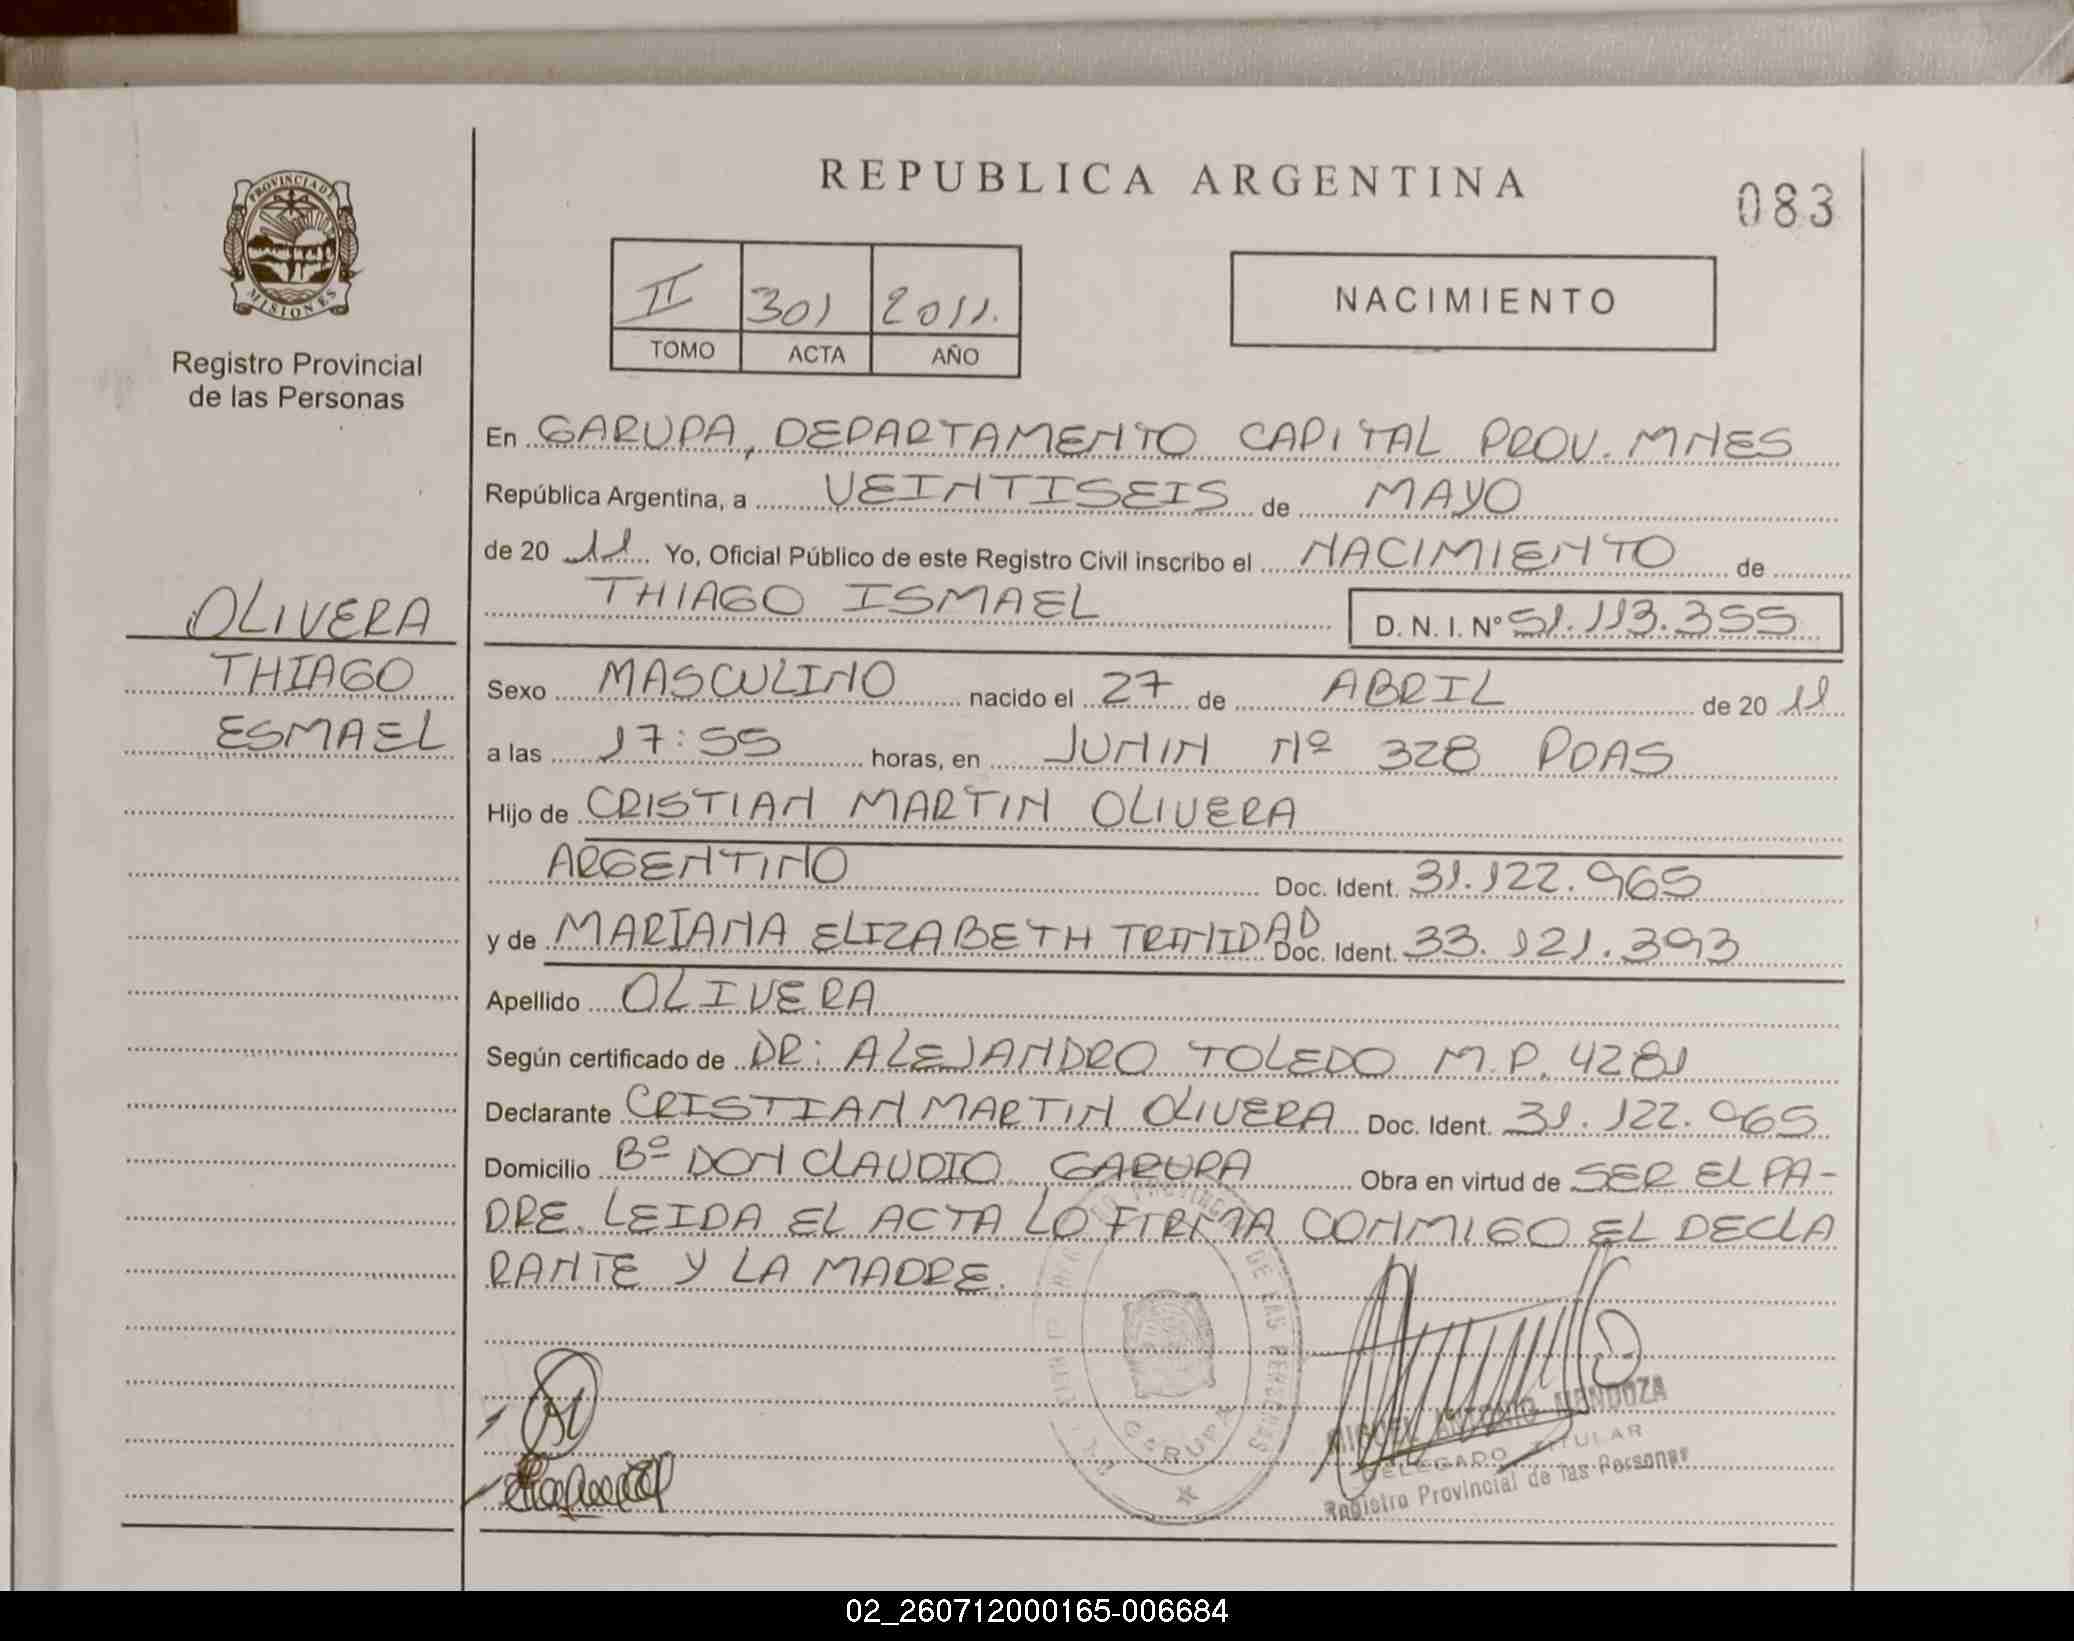 REPUBLICA ARGENTINA
083
PROVINCIA DE
MISIONES
Registro Provincial
de las Personas
II 301 2011.
TOMO ACTA AÑO
NACIMIENTO
En GARUPA, DEPARTAMENTO CAPITAL PROV. MNES
República Argentina, a VEINTISEIS de MAYO
de 20 11 Yo, Oficial Público de este Registro Civil inscribo el NACIMIENTO de
THIAGO ISMAEL D. N. I. Nº 51.113.355
OLIVERA
THIAGO
ESMAEL
Sexo MASCULINO nacido el 27 de ABRIL de 20 11
a las 17:55 horas, en JUNIN Nº 328 PDAS
Hijo de CRISTIAN MARTIN OLIVERA
ARGENTINO Doc. Ident. 31.122.965
y de MARIANA ELIZABETH TRINIDAD Doc. Ident. 33.121.393
Apellido OLIVERA
Según certificado de DR: ALEJANDRO TOLEDO M.P. 4281
Declarante CRISTIAN MARTIN OLIVERA Doc. Ident. 31.122.965
Domicilio Bº DON CLAUDIO GARUPA Obra en virtud de SER EL PA-
DRE. LEIDA EL ACTA LO FIRMA CONMIGO EL DECLA
RANTE Y LA MADRE.
DE LAS PERSONAS
GARUPA
MIGUEL ANTONIO MENDOZA
DELEGADO TITULAR
Registro Provincial de las Personas
02_260712000165-006684